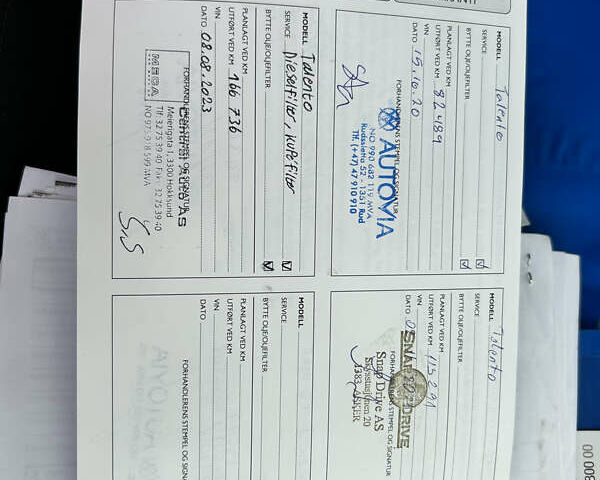 MODELL Talento
SERVICE
BYTTE OLJE/OLJEFILTER
PLANLAGT VED KM
UTFØRT VED KM 82 489
VIN
DATO 15.10.20
FORHANDLERENS STEMPEL OG SIGNATUR
AUTOVIA
NO 990 682 119 MVA
Rudssletta 52 - 1351 Rud
Tlf. (+47) 47 910 910
MODELL Talento
SERVICE
BYTTE OLJE/OLJEFILTER
PLANLAGT VED KM
UTFØRT VED KM 115291
VIN
DATO
FORHANDLERENS STEMPEL OG SIGNATUR
SNAP DRIVE
Snap Drive AS
1383 ASKER
MODELL Talento
SERVICE Dieselfilter, kupéfilter
BYTTE OLJE/OLJEFILTER
PLANLAGT VED KM
UTFØRT VED KM 166 736
VIN
DATO 08.08.2023
FORHANDLERENS STEMPEL OG SIGNATUR
MECA
Meiengata 1, 3300 Hokksund
Tlf. 32 75 39 40 Fax 32 75 39 40
MODELL
SERVICE
BYTTE OLJE/OLJEFILTER
PLANLAGT VED KM
UTFØRT VED KM
VIN
DATO
FORHANDLERENS STEMPEL OG SIGNATUR